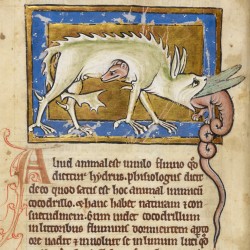 Aliud animal est in nilo flumine qd
dicitur hydrus. physiologus dicit
de eo quod satis est hoc animal inimicū
cocodrillo. et hanc habet naturam et con
suetudinem. cum videt cocodrillum
in littoribus fluminis dormientem apto
ore vadit et involvit se in lutum